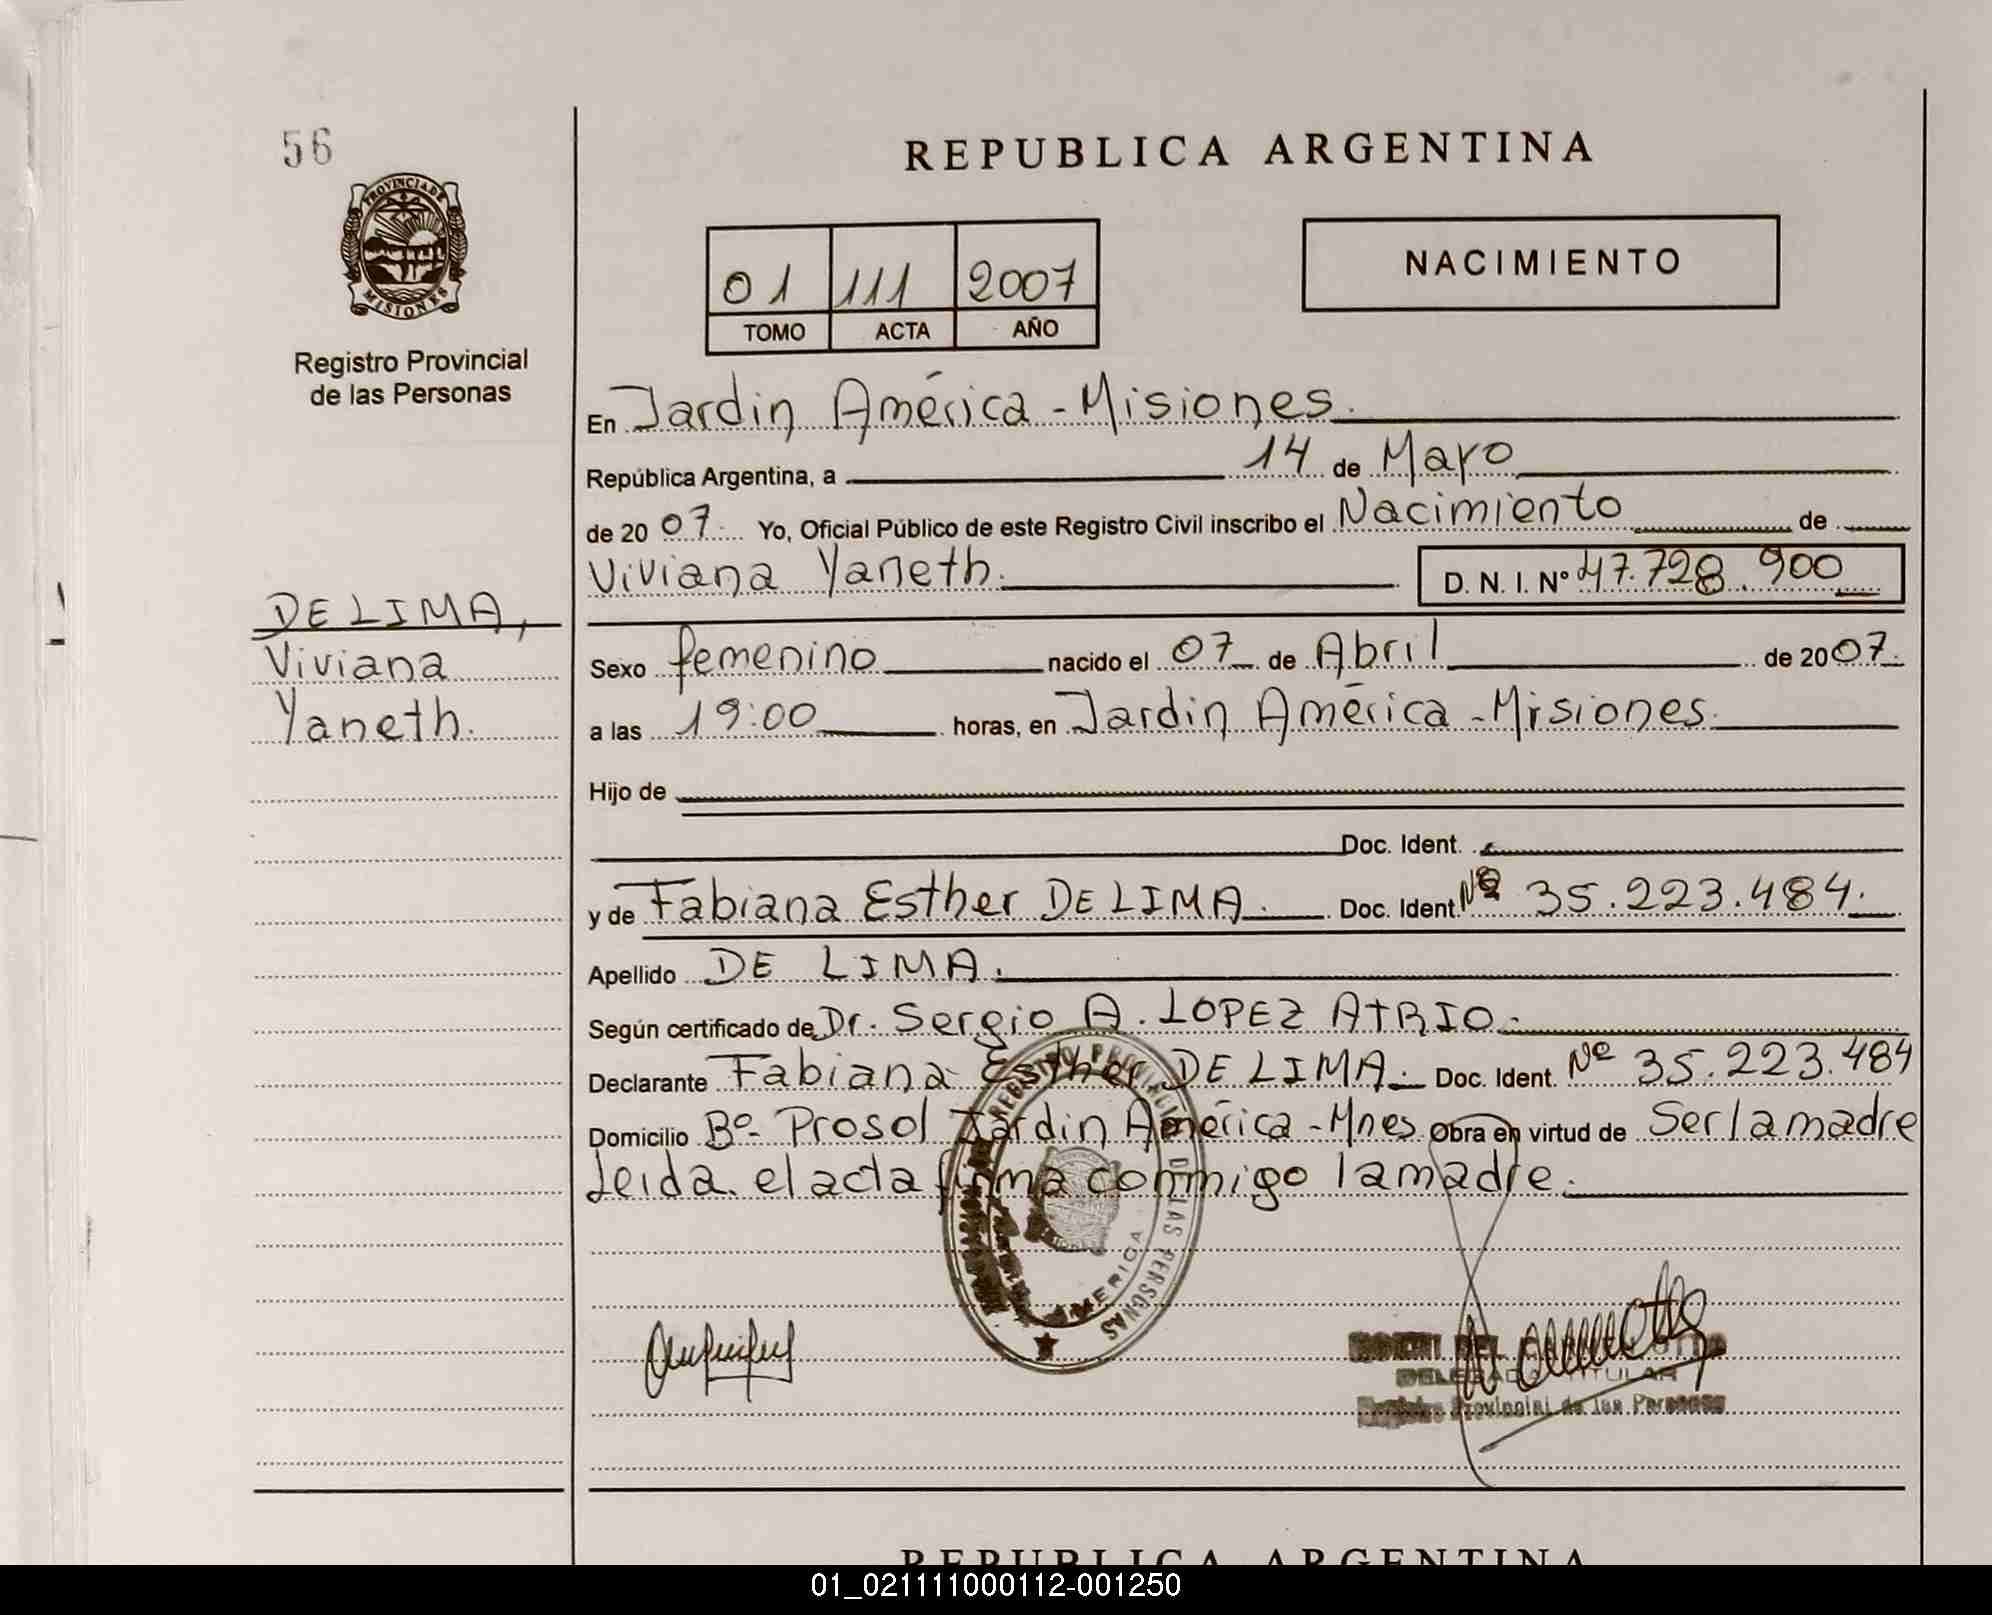 56
REPUBLICA ARGENTINA
PROVINCIA DE
MISIONES
Registro Provincial
de las Personas
01 111 2007
TOMO ACTA AÑO
NACIMIENTO
En Jardin América - Misiones.
República Argentina, a 14 de Mayo
de 20 07. Yo, Oficial Público de este Registro Civil inscribo el Nacimiento de
Viviana Yaneth. D. N. I. Nº 47.728.900
DE LIMA,
Viviana
Yaneth.
Sexo femenino nacido el 07 de Abril de 2007.
a las 19:00 horas, en Jardin América - Misiones.
Hijo de
Doc. Ident.
y de Fabiana Esther DE LIMA. Doc. Ident. Nº 35.223.484.
Apellido DE LIMA.
Según certificado de Dr. Sergio A. LOPEZ ATRIO.
Declarante Fabiana Esther DE LIMA. Doc. Ident. Nº 35.223.484
Domicilio Bº Prosol Jardin América - Mnes. Obra en virtud de Ser la madre
Leida el acta firma conmigo la madre.
REGISTRO PROVINCIAL DE LAS PERSONAS
AMERICA
DELEGADA TITULAR
Registro Provincial de las Personas
REPUBLICA ARGENTINA
01_021111000112-001250